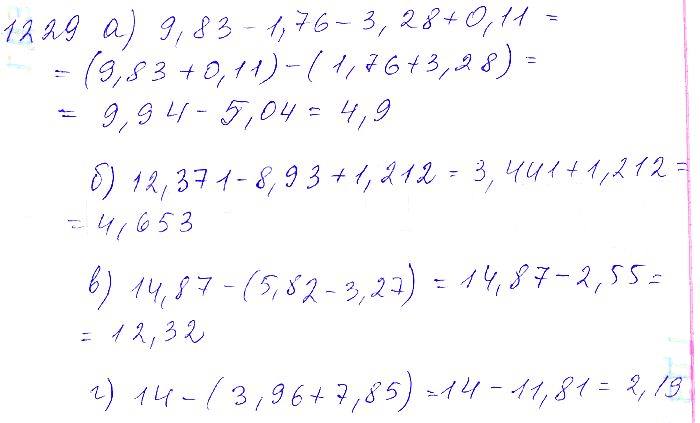 1229 а) 9,83 - 1,76 - 3,28 + 0,11 =
= (9,83 + 0,11) - (1,76 + 3,28) =
= 9,94 - 5,04 = 4,9
б) 12,371 - 8,93 + 1,212 = 3,441 + 1,212 =
= 4,653
в) 14,87 - (5,82 - 3,27) = 14,87 - 2,55 =
= 12,32
г) 14 - (3,96 + 7,85) = 14 - 11,81 = 2,19